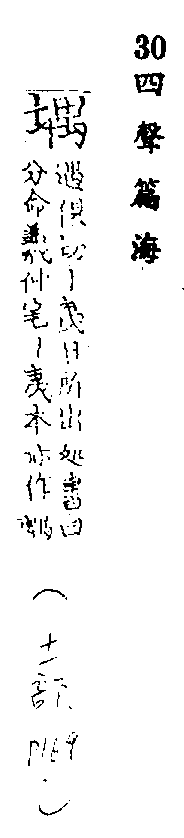 30四聲篇海
堣
遇俱切丨夷日所出処書曰
分命羲仲宅丨夷本亦作嵎
（土部 P169.）